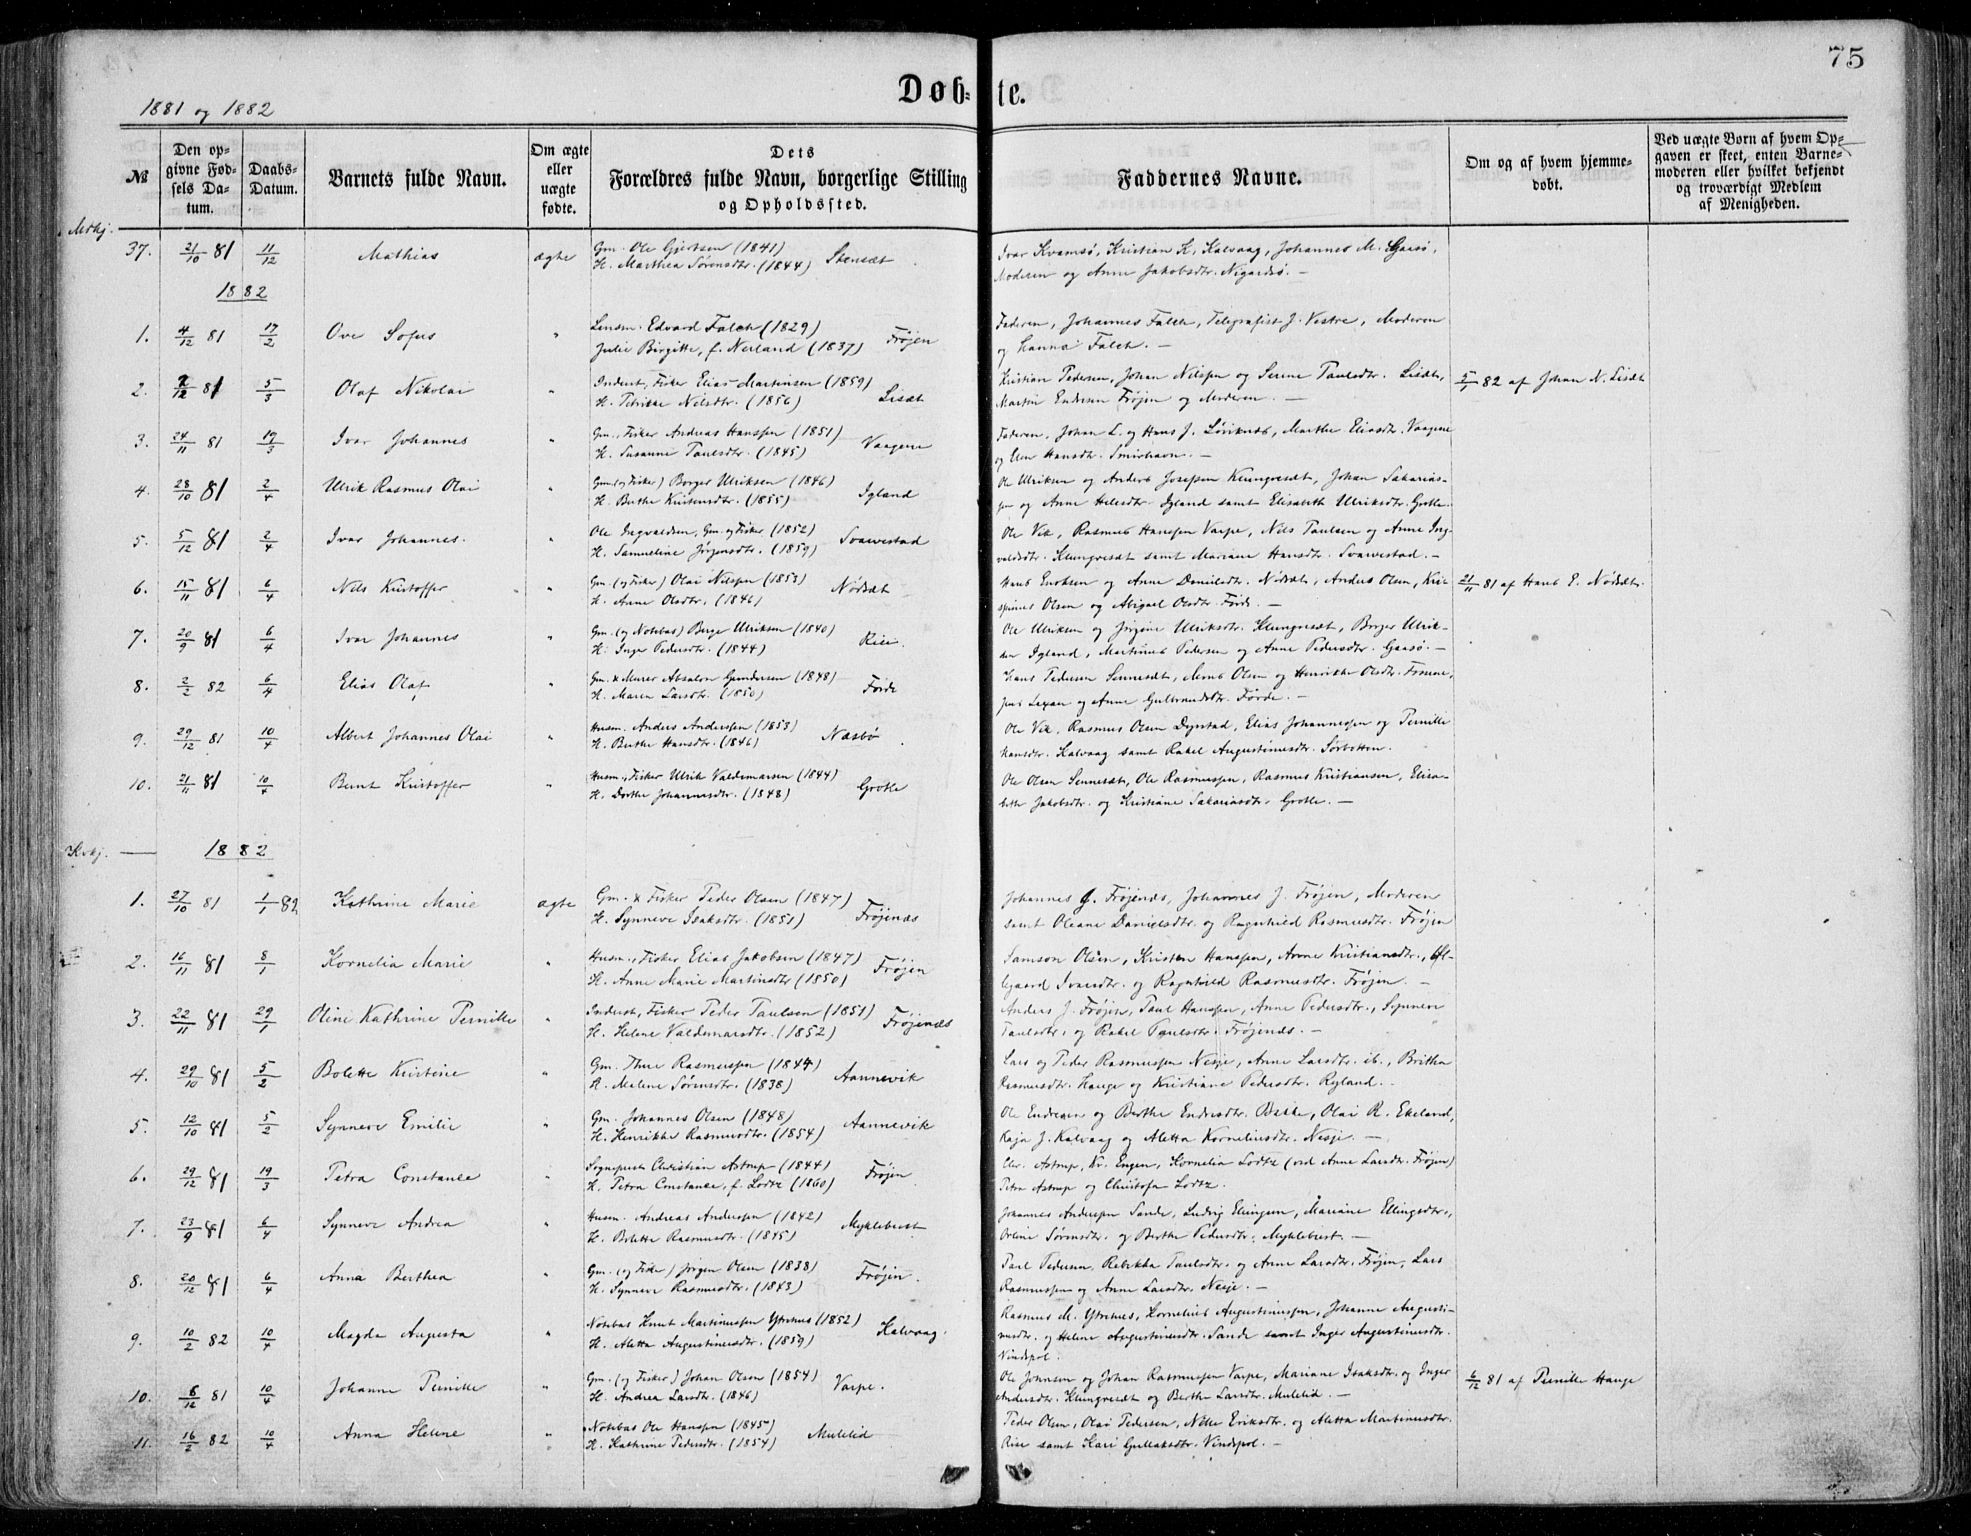 75
Døb- te.
1881 og 1882
№
Den op-
givne Fød-
sels Da-
tum.
Daabs-
Datum.
Barnets fulde Navn.
Om ægte
eller
uægte
fødte.
Dets
Forældres fulde Navn, borgerlige Stilling
og Opholdssted.
Faddernes Navne.
Om og af hvem hjemme-
døbt.
Ved uægte Børn af hvem Op-
gaven er skeet, enten Barne-
moderen eller hvilket bekjendt
og troværdigt Medlem
af Menigheden.
37. 21/10 81 11/12 Mathias ægte Gm. Ole Gjertsen (1841) Stensæt Ivar Kvamsø, Kristian K. Kalvaag, Johannes M. Gaasø,
H. Marthea Sørensdtr. (1844) Moderen og Anne Jakobsdtr. Nigardsø. —
1882
1. 4/12 81 17/2 Ove Sofus " Lensm. Edvard Falch (1829) Frøjen Faderen, Johannes Falch, Telegrafist J. Vestre, Moderen
Julie Birgitte, f. Nerland (1837) og Hanna Falch. —
2. 81 5/3 Olaf Nikolai " Inderst, Fisker Elias Martinsen (1859) Lisæt Kristian Pedersen, Johan Nilssen og Serine Paulsdtr. Lisæt, 5/1 82 af Johan N. Lisæt
H. Petrikke Nilsdtr. (1856) Martin Endresen Frøjen og Moderen. —
3. 24/11 81 17/3 Ivar Johannes " Gm., Fisker Andreas Hanssen (1851) Vaagene Faderen, Johan L. og Hans J. Løviknæs, Marthe Eliasdtr. Vaagene
H. Susanne Paulsdtr. (1845) og Elen Hansdtr. Smørhavn. —
4. 28/10 81 2/4 Ulrik Rasmus Olai " Gm. (og Fisker) Borger Ulriksen (1846) Igland Ole Ulriksen og Anders Josefsen Klungresæt, Johan Sakarias-
H. Berthe Kristensdtr. (1855) sen og Anne Helesdtr. Igland samt Elisabeth Ulriksdtr. Grotle.
5. 5/12 81 2/4 Ivar Johannes. " Ole Ingvaldsen, Gm. og Fisker (1852) Svarvestad Ole Vik, Rasmus Hanssen Varpe, Nils Paulsen og Anne Ing-
H. Samueline Jørgensdtr. (1859) valdsdtr. Klungresæt samt Mariane Hansdtr. Svarvestad. —
6. 15/11 81 6/4 Nils Kristoffer " Gm. (og Fisker) Olai Nilssen (1853) Nødsæt Hans Eriksen og Anne Danielsdtr. Nødsæt, Anders Olsen, Kri- 21/11 81 af Hans E. Nødsæt.
H. Anne Olsdtr. (1846) spinus Olsen og Abigael Olsdtr. Førde. —
7. 20/9 81 6/4 Ivar Johannes " Gm. (og Notebas) Berge Ulriksen (1840) Risе. Ole Ulriksen og Jørgine Ulriksdtr. Klungresæt, Borger Ulrik-
H. Inger Pedersdtr. (1844) sen Igland, Martinus Pedersen og Anne Pedersdtr. Gaasø. —
8. 2/2 82 6/4 Elias Olaf " Gm. & Murer Absalon Gundersen (1848) Førde Hans Pedersen Sennesæt, Olsen og Henrikke Olsdtr.
H. Maren Larsdtr. (1850) og Anne Gulbrandsdtr. Førde. —
9. 29/12 81 10/4 Albert Johannes Olai " Husm. Anders Anderssen (1853) Næsbø Ole Vik, Rasmus Olsen Dyrstad, Elias Johannessen og Pernille
H. Berthe Hansdtr. (1846) Hansdtr. Kalvaag samt Rakel Augustinusdtr. Sørbotten.
10. 21/11 81 10/4 Bernt Kristoffer " Husm., Fisker Ulrik Valdemarsen (1844) Grotle Ole Olsen Sennesæt, Ole Rasmussen, Rasmus Kristiansen, Elisa-
H. Dorthe Johannesdtr. (1848) beth Jakobsdtr. og Kristiane Sakariasdtr. Grotle. —
1882
1. 27/10 81 1/1 82 Kathrine Marie ægte Gm. & Fisker Peder Olsen (1847) Frøjenæs Johannes J. Frøjenæs, Johannes J. Frøjen, Moderen
H. Synneve Isaksdtr. (1851) samt Oleane Danielsdtr. og Ragnhild Rasmusdtr. Frøjen
2. 16/11 81 8/1 Kornelia Marie " Husm., Fisker Elias Jakobsen (1847) Frøjen Samson Olsen, Kristen Hanssen, Anne Kristiansdtr., Øl-
H. Anne Marie Martinsdtr (1850) legaard Ivarsdtr. og Ragnhild Rasmusdtr. Frøjen. —
3. 22/11 81 29/1 Oline Kathrine Pernille " Inderst, Fisker Peder Paulsen (1851) Frøjenæs Anders J. Frøjen, Paul Hanssen, Anne Pedersdtr., Synneve
H. Helene Valdemarsdtr. (1852) Paulsdtr. og Rakel Paulsdtr. Frøjenæs. —
4. 29/10 81 5/2 Bolette Kristine " Gm. Thue Rasmussen (1844) Aannevik Lars og Peder Rasmussen Nesje, Anne Larsdtr. ib., Britha
H. Malene Sørensdtr. (1838) Rasmusdtr. Hauge og Kristiane Pedersdtr. Ryland. —
5. 12/10 81 5/2 Synneve Emilie " Gm. Johannes Olsen (1848) Aannevik Ole Endresen og Berthe Endresdtr. Bakke, Olai R. Ekeland,
H. Henrikke Rasmusdtr. (1854) Kaja J. Kalvaag og Aletta Korneliusdtr. Nesje. —
6. 29/12 81 19/3 Petra Constance " Sognepræst Christian Astrup (1844) Frøjen Chr. Astrup, Kr. Engen, Kornelia Lodtz (ved Anne Larsdtr. Frøjen)
H. Petra Constance, f. Lodtz (1860) Petra Astrup og Christofa Lodtz.
7. 23/9 81 6/4 Synneve Andrea " Husm. Andreas Anderssen (1842) Myklebust Johannes Anderssen Sande, Ludvig Ellingsen, Mariane Ellingsdtr.,
H. Bolette Rasmusdtr. (1845) Oline Sørensdtr. og Berthe Pedersdtr. Myklebust. —
8. 20/12 81 6/4 Anna Berthea " Gm. (og Fisker) Jørgen Olsen (1838) Frøjen. Paul Pedersen, Rebekka Paulsdtr. og Anne Larsdtr. Frøjen, Lars
H. Synneve Rasmusdtr. (1843) Rasmussen og Anne Larsdtr. Nesje. —
9. 10/2 82 10/4 Magda Augusta " Notebas Knut Martinussen Ytrenes (1852) Kalvaag. Rasmus M. Ytrenes, Kornelius Augustinussen, Johanne Augusti-
H. Aletta Augustinusdtr. (1859) nusdtr. og Helene Augustinusdtr. Sande samt Inger Augustinusdtr.
Vindspol.
10. 6/12 81 10/4 Johanne Pernille " Gm. (og Fisker) Johan Olsen (1854) Varpe. Ole Johnsen og Johan Rasmussen Varpe, Mariane Isaksdtr. og Inger 6/12 81 af Pernille Hauge
H. Andrea Larsdtr. (1846) Andersdtr. Klungresæt og Berthe Larsdtr. Mulelid. —
11. 16/2 82 10/4 Anna Helene " Notebas Ole Hanssen (1845) Mulelid Peder Olsen, Olai Pedersen, Nille Eriksdtr. og Aletta Martinusdtr.
H. Kathrine Pedersdtr. (1854) Rise samt Kari Gullaksdtr. Vindspol. —